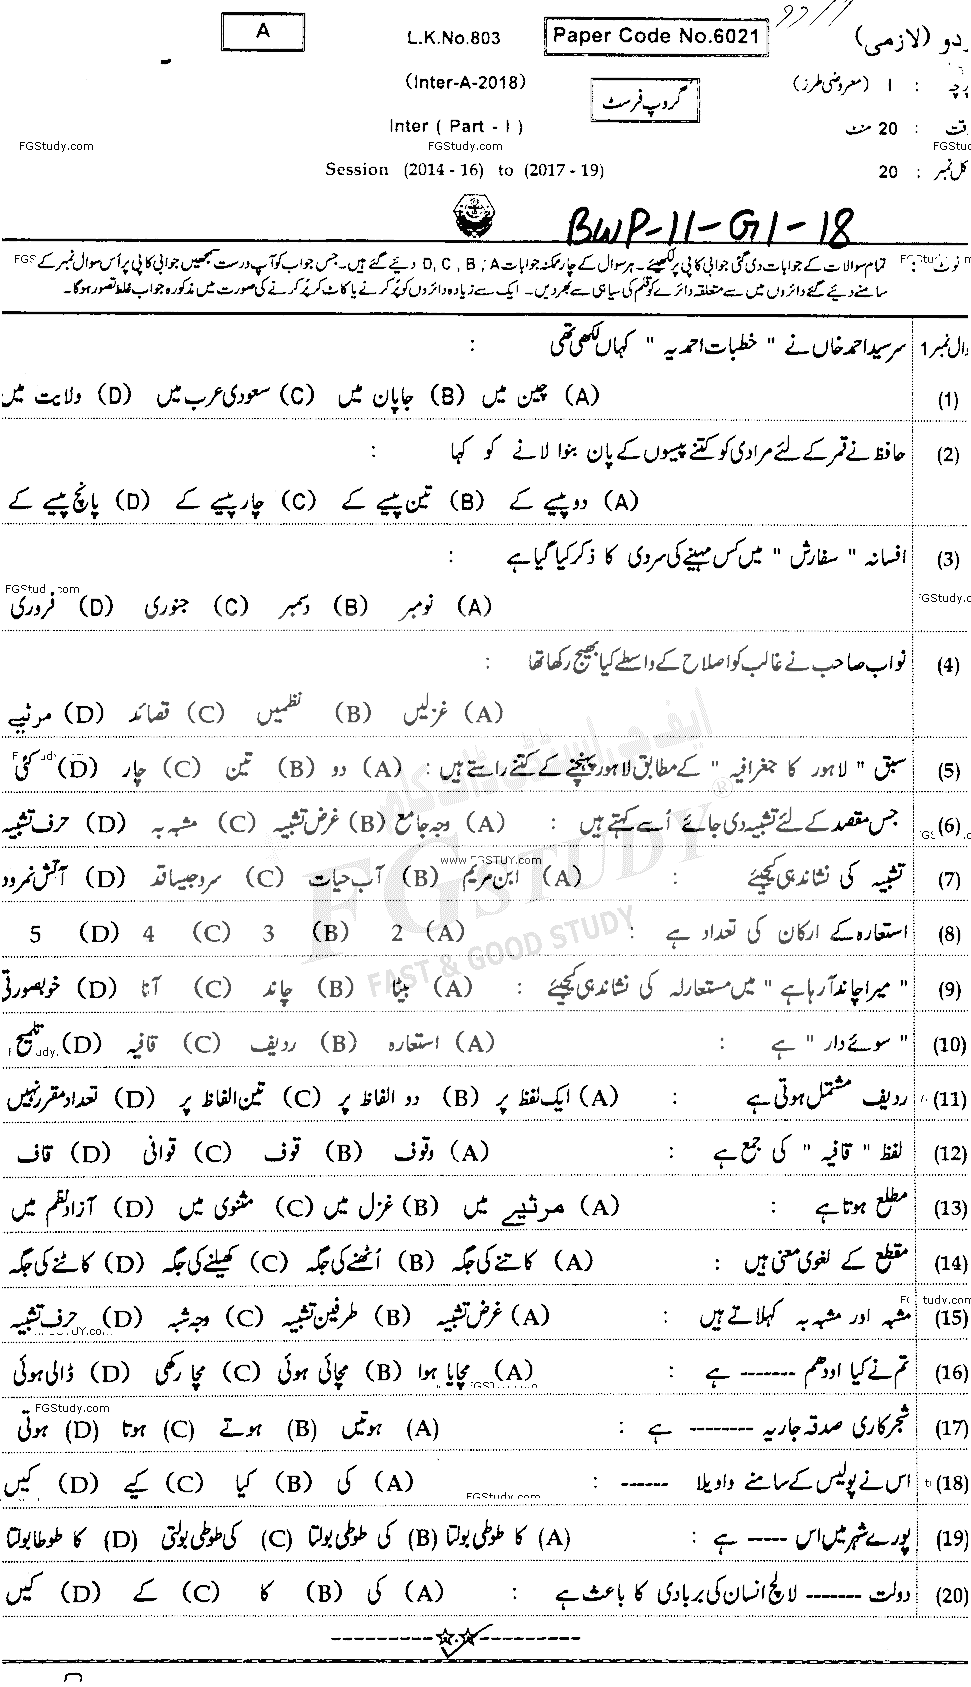 A L.K.No.803 Paper Code No.6021 اردو (لازمی)
(Inter-A-2018) گروپ فرسٹ پرچہ : I (معروضی طرز)
Inter ( Part - I ) وقت : 20 منٹ
FGStudy.com FGStudy.com FGStudy.com
Session (2014 - 16) to (2017 - 19) کل نمبر : 20
BWP-11-G1-18
نوٹ : تمام سوالات کے جوابات دی گئی جوابی کاپی پر لکھیئے۔ ہر سوال کے چار ممکنہ جوابات A ; B ، C ، D دیئے گئے ہیں۔ جس جواب کو آپ درست سمجھیں جوابی کاپی پر اُس سوال نمبر کے
سامنے دیئے گئے دائروں میں سے متعلقہ دائرے کو قلم کی سیاہی سے بھر دیں۔ ایک سے زیادہ دائروں کو پُر کرنے یا کاٹ کر پُر کرنے کی صورت میں مذکورہ جواب غلط تصور ہوگا۔
سوال نمبر 1 سرسید احمد خاں نے " خطبات احمدیہ " کہاں لکھی تھی :
(1) (A) چین میں (B) جاپان میں (C) سعودی عرب میں (D) ولایت میں
(2) حافظ نے قمر کے لئے مرادی کو کتنے پیسوں کے پان بنوا لانے کو کہا :
(A) دو پیسے کے (B) تین پیسے کے (C) چار پیسے کے (D) پانچ پیسے کے
(3) افسانہ " سفارش " میں کس مہینے کی سردی کا ذکر کیا گیا ہے :
(A) نومبر (B) دسمبر (C) جنوری (D) فروری
(4) نواب صاحب نے غالب کو اصلاح کے واسطے کیا بھیج رکھا تھا :
(A) غزلیں (B) نظمیں (C) قصائد (D) مرثیے
(5) سبق " لاہور کا جغرافیہ " کے مطابق لاہور پہنچنے کے کتنے راستے ہیں : (A) دو (B) تین (C) چار (D) کئی
(6) جس مقصد کے لئے تشبیہ دی جائے اُسے کہتے ہیں : (A) وجہ جامع (B) غرض تشبیہ (C) مشبہ بہ (D) حرف تشبیہ
www.FGSTUY.com
(7) تشبیہ کی نشاندہی کیجیئے : (A) ابن مریم (B) آب حیات (C) سرو جیسا قد (D) آتش نمرود
(8) استعارہ کے ارکان کی تعداد ہے : (A) 2 (B) 3 (C) 4 (D) 5
ایف جی سٹڈی ڈاٹ کام
FG STUDY ®
FAST & GOOD STUDY
(9) " میرا چاند آ رہا ہے " میں مستعار لہ کی نشاندہی کیجیئے : (A) بیٹا (B) چاند (C) آنا (D) خوبصورتی
(10) " سوئے دار " ہے : (A) استعارہ (B) ردیف (C) قافیہ (D) تلمیح
(11) ردیف مشتمل ہوتی ہے : (A) ایک لفظ پر (B) دو الفاظ پر (C) تین الفاظ پر (D) تعداد مقرر نہیں
(12) لفظ " قافیہ " کی جمع ہے : (A) وقوف (B) قوف (C) قوافی (D) قاف
(13) مطلع ہوتا ہے : (A) مرثیے میں (B) غزل میں (C) مثنوی میں (D) آزاد نظم میں
(14) مقطع کے لغوی معنی ہیں : (A) کاتنے کی جگہ (B) اُٹھنے کی جگہ (C) کھیلنے کی جگہ (D) کاٹنے کی جگہ
(15) مشبہ اور مشبہ بہ کہلاتے ہیں : (A) غرض تشبیہ (B) طرفین تشبیہ (C) وجہ شبہ (D) حرف تشبیہ
(16) تم نے کیا اودھم ------- ہے : (A) مچایا ہوا (B) مچائی ہوئی (C) مچا رکھی (D) ڈالی ہوئی
FGStudy.com
(17) شجر کاری صدقہ جاریہ -------- ہے : (A) ہوتیں (B) ہوتے (C) ہوتا (D) ہوتی
(18) اس نے پولیس کے سامنے واویلا ------ : (A) کی (B) کیا (C) کیے (D) کیں
FGStudy.com
(19) پورے شہر میں اس ----- ہے : (A) کا طوطی بولتا (B) کی طوطی بولتا (C) کی طوطی بولتی (D) کا طوطا بولتا
(20) دولت ------- لالچ انسان کی بربادی کا باعث ہے : (A) کی (B) کا (C) کے (D) کیں